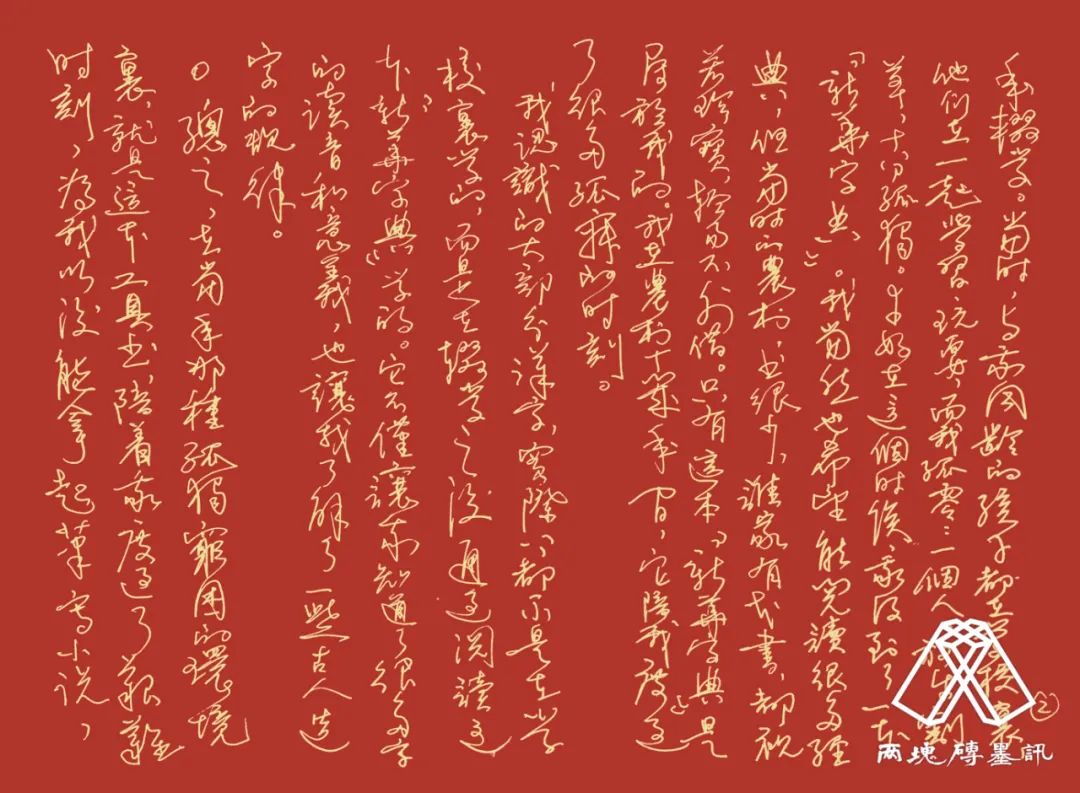 年輟学。當時，与我同齡的孩子都在学校裏
他们在一起学習玩耍，而我孤零零一個人 割
草，十分孤獨。幸好在這個时候，我得到了一本
《新華字典》。我當然也希望能閱讀很多經
典，但當时的農村，书很少，誰家有本書，都視
若珍寶，輕易不外借。只有這本《新華字典》是
屬於我的。我在農村十幾年间，它陪我度过
了很多孤寂的时刻。
我認識的大部分漢字，實際上都不是在学
校裏学的，而是在輟学之後通过閱讀這
本《新華字典》学的。它不僅讓我知道了很多字
的读音和意義，也讓我了解了一些古人造
字的規律。
總之，在當年那種孤獨窮困的環境
裏，就是這本工具书陪着我度过了艱難
时刻，为我以後能拿起筆寫小说，
②
兩塊磚墨訊